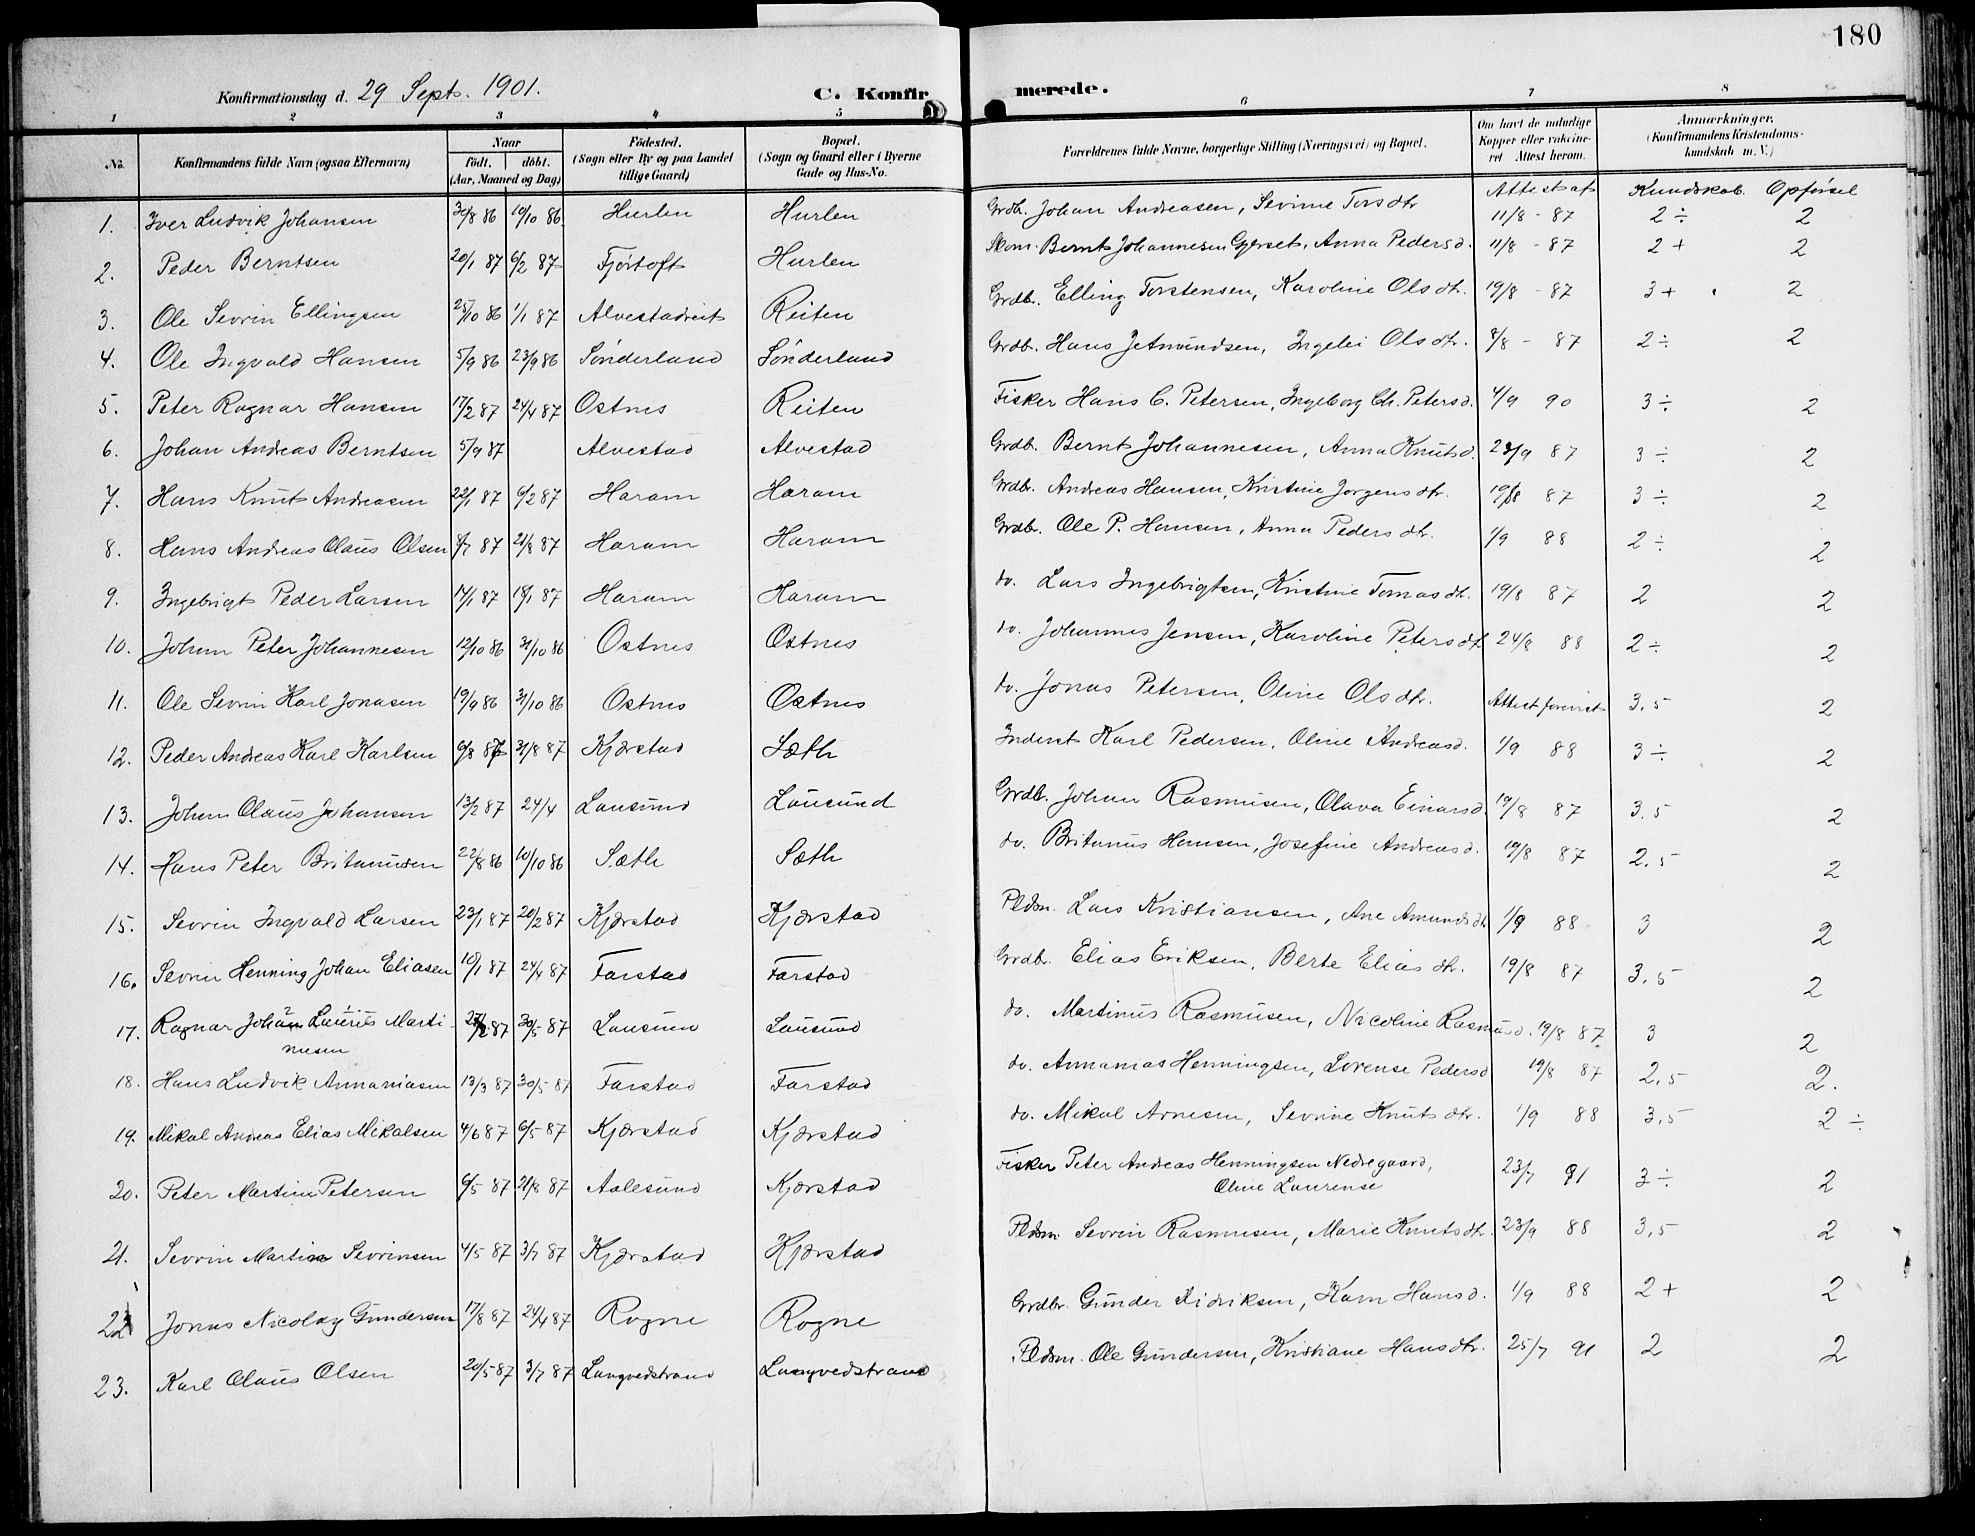 180
Konfirmationsdag d. 29 Sept. 1901. C. Konfirmerede.
1 2 3 4 5 6 7 8
No. Konfirmandens fulde Navn (ogsaa Efternavn) Naar født. døbt. (Aar, Maaned og Dag) Fødested. (Sogn eller By og paa Landet tillige Gaard) Bopæl. (Sogn og Gaard eller i Byerne Gade og Hus-No. Forældrenes fulde Navne, borgerlige Stilling (Næringsvei) og Bopæl. Om havt de naturlige Kopper eller vaccineret Attest herom. Anmærkninger. (Konfirmandens Kristendomskundskab m. V.)
Attest af Kundskab. Opførsel
1. Iver Ludvik Johansen 30/8 86 10/10 86. Hurlen Hurlen Grdb. Johan Andreasen, Sevine Torsdtr 11/8 - 87 2 ÷ 2
2. Peder Berntsen 20/1 87 6/2 87 Fjörtoft Hurlen Skom. Bernt Johannesen Gjerset, Anna Pedersd. 11/8 - 87 2 + 2
3. Ole Sevrin Ellingsen 25/10 86 1/1 87 Alvestadreit Reiten Grdb. Elling Torstensen, Karoline Olsdtr. 19/8 - 87 3 + 2
4. Ole Ingvald Hansen 5/9 86 23/9 86 Sönderland Sönderland Grdb. Hans Jetmundsen, Ingelei Olsdtr. 8/8 - 87 2 ÷ 2
5. Peter Ragnar Hansen 17/2 87 24/4 87 Ostnes Reiten Fisker Hans C. Petersen, Ingeborg Ch. Petersd. 4/9 90 3 ÷ 2
6. Johan Andreas Berntsen 5/9 87 Alvestad Alvestad Grdb. Bernt Johannesen, Anna Knutsd. 23/9 87 3 ÷ 2
7. Hans Knut Andreasen 22/1 87 6/2 87 Haram Haram Grdb. Andreas Hansen, Kristine Jorgensdtr. 19/8 87 3 ÷ 2
8. Hans Andreas Claus Olsen 8/7 87 21/8 87 Haram Haram Grdbr. Ole P. Hansen, Anna Pedersdtr. 1/9 88 2 ÷ 2
9. Ingebrigt Peder Larsen 14/1 87 18/1 87 Haram Haram do. Lars Ingebrigtsen, Kristine Tomasdtr. 19/8 87 2 2
10. Johan Peter Johannesen 12/10 86 31/10 86 Ostnes Ostnes do. Johannes Jensen, Karoline Petersdtr 24/8 88 2 ÷ 2
11. Ole Sevrin Karl Jonasen 19/9 86 31/10 86 Ostnes Ostnes do. Jonas Petersen, Oline Olsdtr. Attest forevist 3,5 2
12. Peder Andreas Karl Karlsen 6/8 87 31/8 87 Kjærstad Sæth Inderst Karl Pedersen, Oline Andreasd. 1/9 88 3 ÷ 2
13. Johan Claus Johansen 13/2 87 24/4 Lausund Lausund Grdb. Johan Rasmusen, Olava Einarsd. 19/8 87 3.5 2
14. Hans Peter Britanusen 22/8 86 10/10 86 Sæth Sæth do. Britanus Hansen, Josefine Andreasd. 19/8 87 2,5 2
15. Sevrin Ingvald Larsen 23/1 87 20/2 87 Kjærstad Kjærstad Pldsm. Lars Kristiansen, Ane Amundsdtr. 1/9 88 3 2
16. Sevrin Henning Johan Eliasen 10/1 87 24/4 87 Farstad Farstad Grdbr. Elias Eriksen, Berte Eliasdtr. 19/8 87 3,5 2
17. Ragnar Johan Lauris Martinusen 87 30/5 87 Lausund Lausund do. Martinus Rasmusen, Nicoline Rasmusd. 19/8 87 3 2
18. Hans Ludvik Annaniasen 13/3 87 30/5 87 Farstad Farstad do. Annanias Henningsen, Lovense Pedersd 19/8 87 2,5 2.
19. Mikal Andreas Elias Mikalsen 4/6 87 6/5 87 Kjærstad Kjærstad do. Mikal Arnesen, Sevrine Knutsdtr. 1/9 88 3,5 2 ÷
20. Peter Martin Petersen 6/5 87 21/8 87 Aalesund Kjærstad Fisker Peter Andreas Henningsen Nedregaard, Oline Laurense 23/7 91 3 ÷ 2
21. Sevrin Martin Sevrinsen 4/5 87 3/7 87 Kjærstad Kjærstad Pldsm Sevrin Rasmusen, Marie Knutsdtr. 23/9 88 3,5 2
22 Jonas Nicolay Gundersen 17/8 87 24/4 87 Rogne Rogne Grdbr. Gunder Didriksen, Karn Hansd. 1/9 88 2 + 2
23. Karl Olaus Olsen 20/5 87 3/7 87 Langvedstrand Langvedstrand Pldsm. Ole Gundersen, Kristiane Hansdtr. 25/7 91 2 2